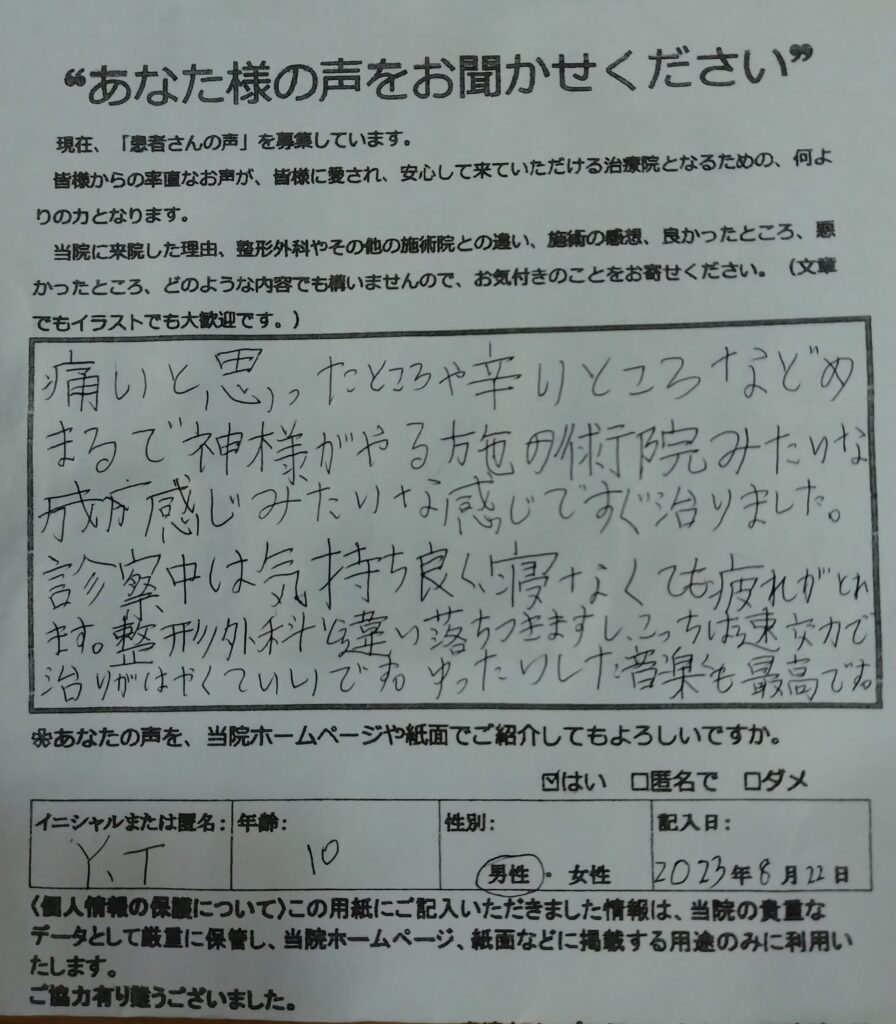 “あなた様の声をお聞かせください”
現在、「患者さんの声」を募集しています。
皆様からの率直なお声が、皆様に愛され、安心して来ていただける治療院となるための、何よ
りの力となります。
当院に来院した理由、整形外科やその他の施術院との違い、施術の感想、良かったところ、悪
かったところ、どのような内容でも構いませんので、お気付きのことをお寄せください。（文章
でもイラストでも大歓迎です。）
痛いと思ったところや辛いところなどめ
まるで神様がやる施術院みたいな
感じみたいな感じですぐ治りました。
診察中は気持ち良く、寝なくても疲れがとれ
ます。整形外科と違い落ちつきますし、こっちは速交力で
治りがはやくていいです。ゆったりした音楽も最高です。
※あなたの声を、当院ホームページや紙面でご紹介してもよろしいですか。
☑はい □匿名で □ダメ
イニシャルまたは匿名: 年齢: 性別: 記入日:
Y.T 10 男性・女性 2023年8月22日
〈個人情報の保護について〉この用紙にご記入いただきました情報は、当院の貴重な
データとして厳重に保管し、当院ホームページ、紙面などに掲載する用途のみに利用い
たします。
ご協力有り難うございました。